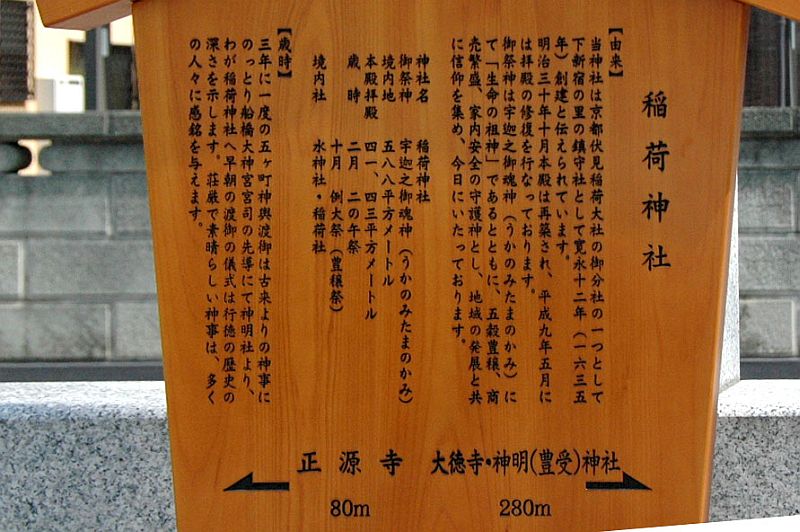 稲荷神社
【由来】
当神社は京都伏見稲荷大社の御分社の一つとして
下新宿の里の鎮守社として寛永十二年（一六三五
年）創建と伝えられています。
明治三十年十月本殿は再築され、平成九年五月に
は拝殿の修復を行なっております。
御祭神は宇迦之御魂神（うかのみたまのかみ）に
て「生命の祖神」であるとともに、五穀豊穣、商
売繁盛、家内安全の守護神とし、地域の発展と共
に信仰を集め、今日にいたっております。
神社名　稲荷神社
御祭神　宇迦之御魂神（うかのみたまのかみ）
境内地　五八八平方メートル
本殿拝殿　四一、四三平方メートル
歳時　二月　二の午祭
十月　例大祭（豊穣祭）
境内社　水神社・稲荷社
【歳時】
三年に一度の五ヶ町神輿渡御は古来よりの神事に
のっとり船橋大神宮宮司の先導にて神明社より、
わが稲荷神社へ早朝の渡御の儀式は行徳の歴史の
深さを示します。荘厳で素晴らしい神事は、多く
の人々に感銘を与えます。
正源寺
80m
大徳寺・神明(豊受)神社
280m